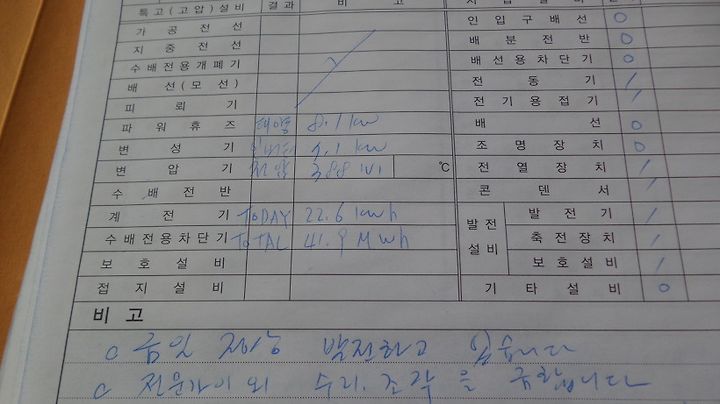 특고(고압)설비 결과 비고
가공전선
지중전선
수배전용개폐기
배선(모선)
피뢰기
파워휴즈 태양 8.1 kw
변성기
변압기 전압 388 ℃
수배전반
계전기 TODAY 22.6 kwh
수배전용차단기 TOTAL 41.9 Mwh
보호설비
접지설비
인입구배선 ○
배분전반 ○
배선용차단기 ○
전동기 /
전기용접기 /
배선 ○
조명장치 ○
전열장치 /
콘덴서 /
발전설비 발전기 /
축전장치 /
보호설비 /
기타설비 ○
비고
○ 금일 발전하고 있습니다
○ 전문가이외 수리.조작을 금합니다